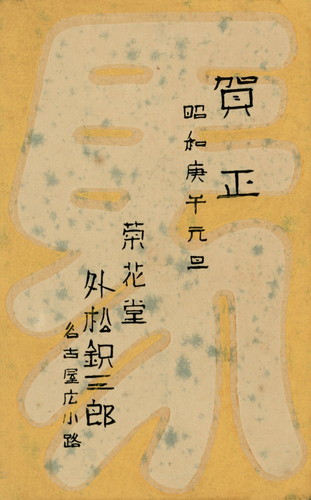 賀正
昭和庚午元旦
栄花堂
外松鉙三郎
名古屋広小路